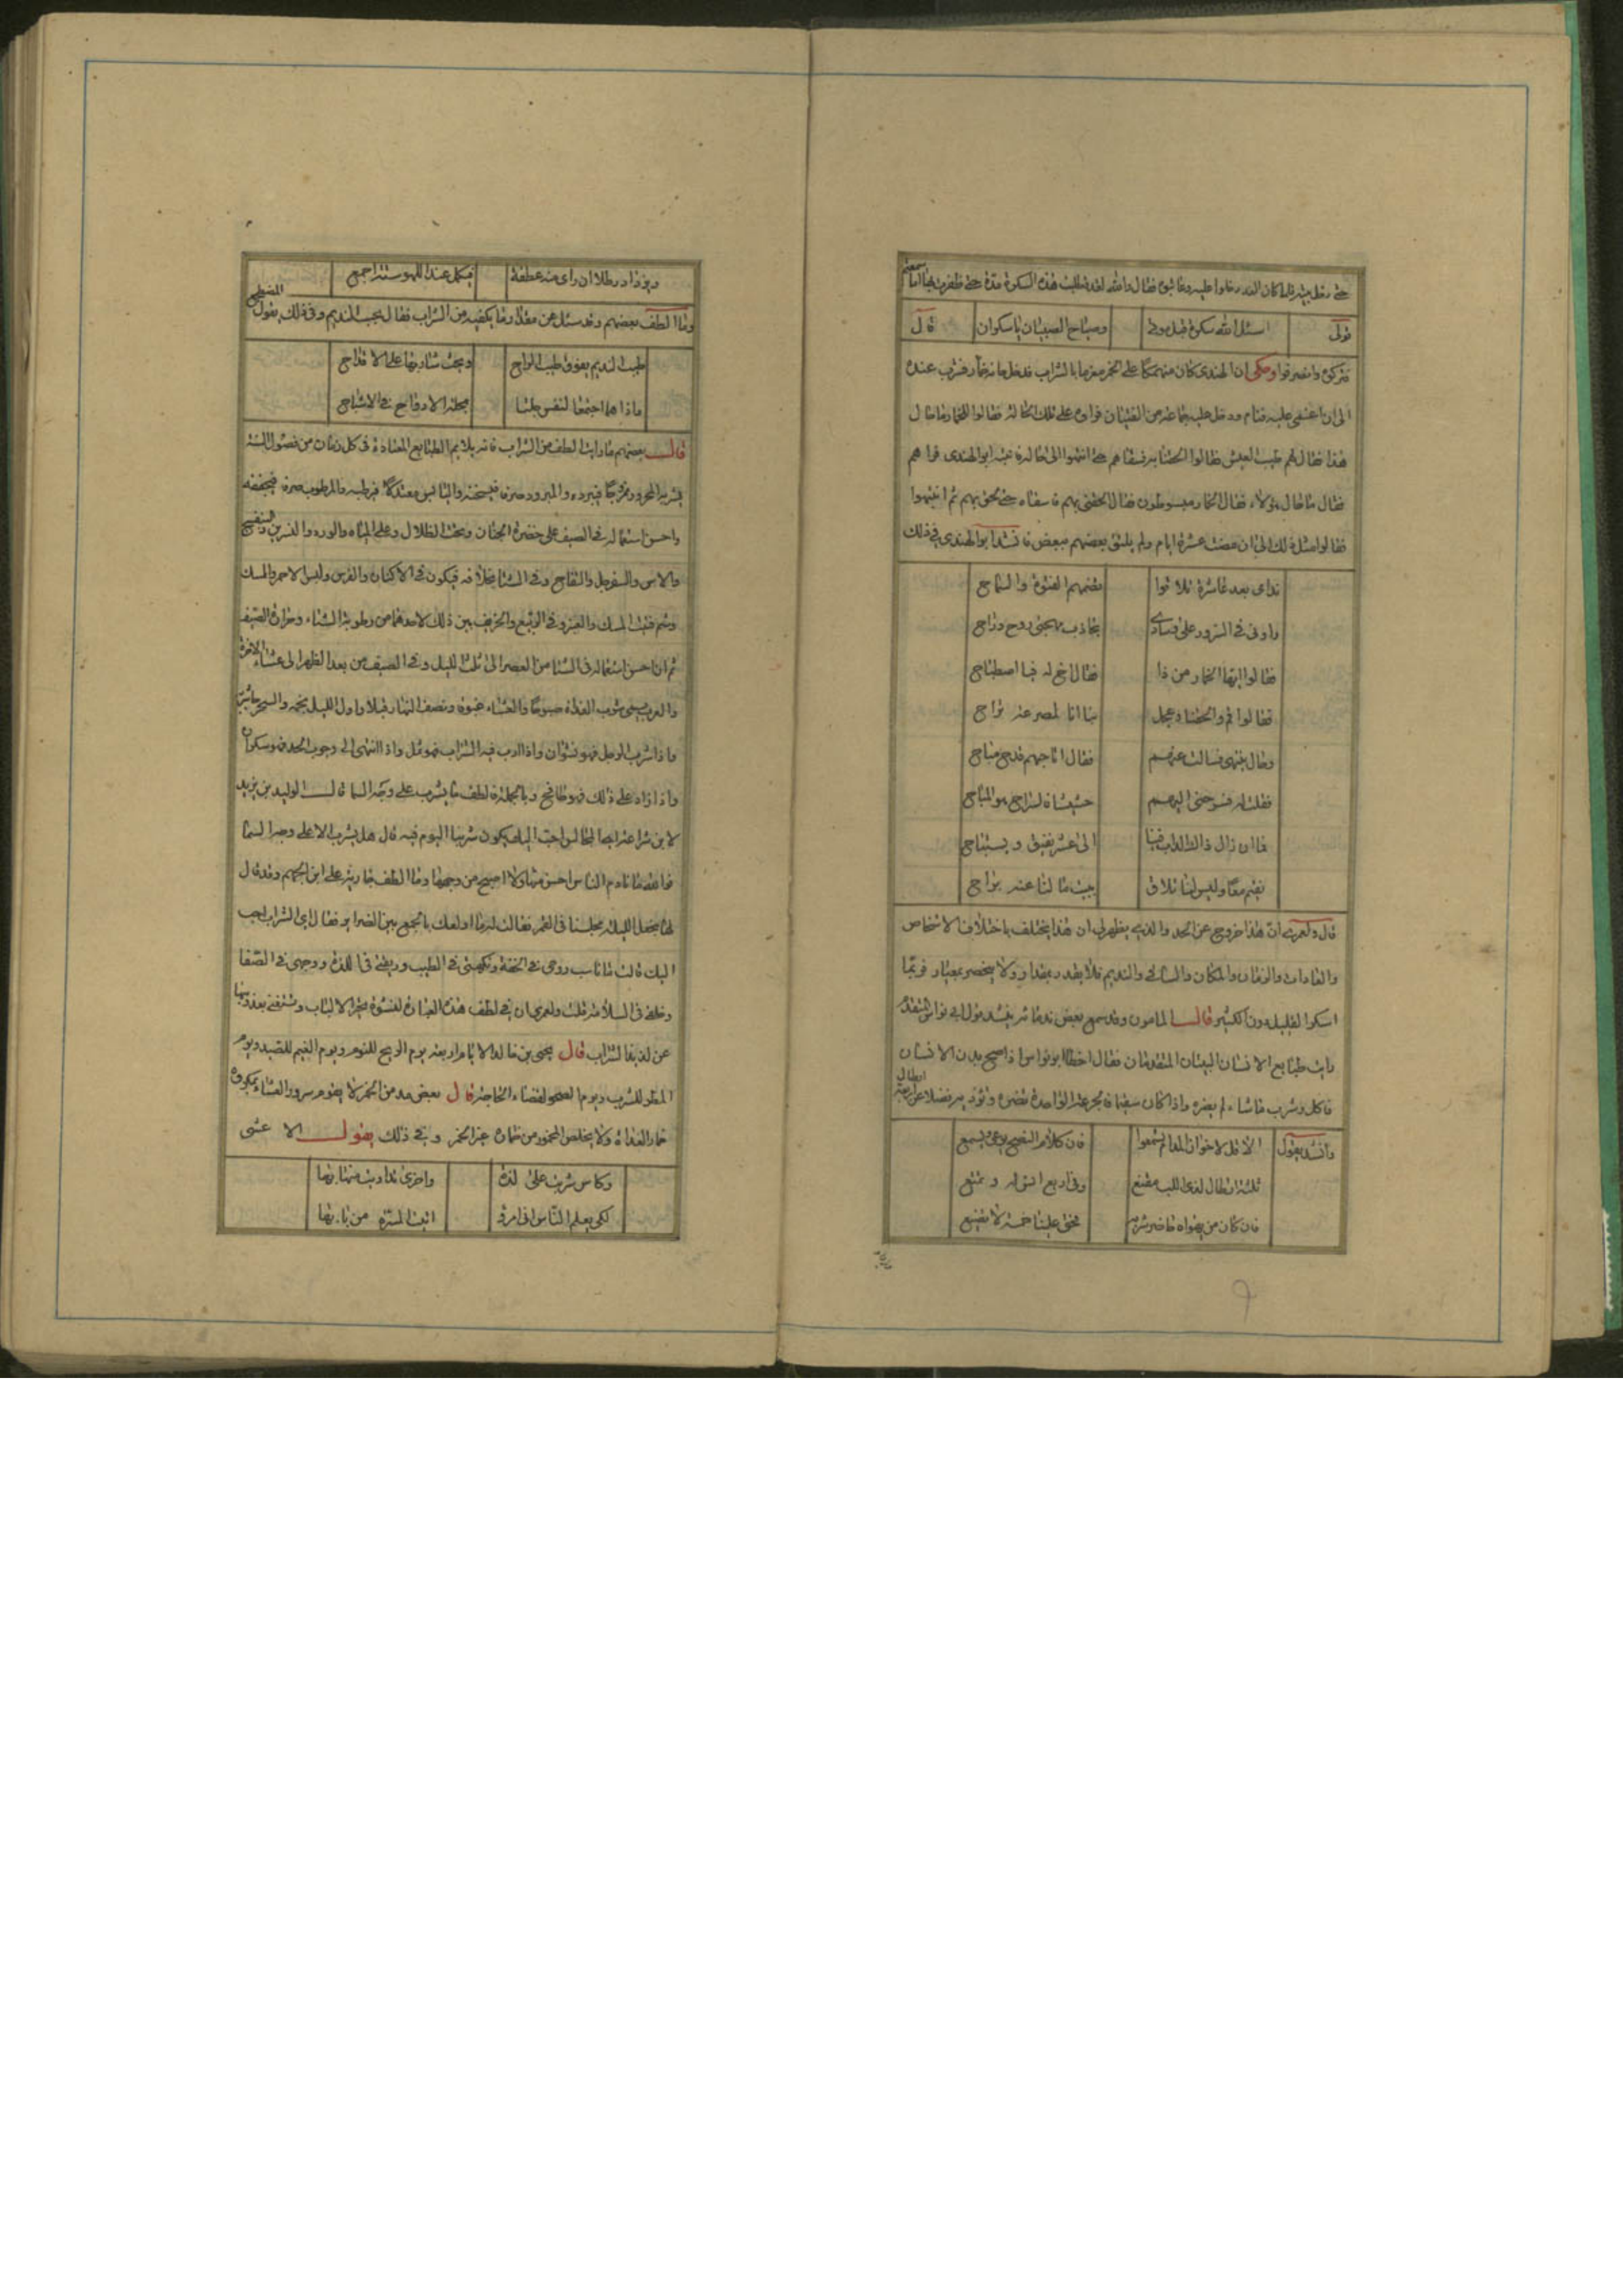 حتى دخل بيته فلما كان الغد دخلوا عليه وعاتبوه فقال والله لقد طلبت هذه السكرة مدة حتى ظفرت بها اما سمعتم
قولى اسئل الله سكرة قبل موتى وصياح الصبيان ياسكران قال
فتركوه وانصرفوا وحكى ان ابا الهندى كان منهمكا على الخمر مغرما بالشراب فدخل حانة خمار فشرب عنده
الى ان اغشى عليه فنام ودخل عليه جماعة من الفتيان فراوه على تلك الحالة فقالوا للخمار ما حال
هذا فقال لهم طيب العيش فقالوا الحقنا به فسقاهم حتى انتهوا الى حاله فانتبه ابو الهندى فراهم
فقال ما حال هؤلاء فقال الخمار مبسوطون فقال الحقنى بهم فاسقاه حتى لحق بهم ثم انتبهوا
فقالوا مثل ذلك الى ان مضت عشرة ايام ولم يلتق بعضهم ببعض فانشد ابو الهندى فى ذلك
ندامى بعد عاشرة تلاقوا تضمهم الفتوة والسماح
فقالوا ايها الخمار من ذا فقال اخ له فيا اصطباح
فقالوا قم والحقنا وعجل بنا انا لمصرعه نراح
وحال تنبهى فسالت عنهم فقال اتاحهم قدح متاح
فقلت له فسرحنى اليهم
فما ان زال ذاك الداب فينا الى عشر نفيق و يستباح
نقيم معا وليس لنا تلاق ببيت ما لنا عنه براح
قال ولعمرى ان هذا خروج عن الحد والذى يظهر لى ان هذا يختلف باختلاف الاشخاص
والعادات والزمان والمكان والساقى والنديم فلا يقدر بمقدار ولا ينحصر بمعيار فربما
اسكر القليل دون الكثير قال المامون وقد سمع بعض ندمائه ينشد قول ابى نواس المتقدم
رايت طبايع الانسان البيتان المتقدمان فقال اخطا ابو نواس اذا صح بدن الانسان
فاكل وشرب ماشاء لم يضره واذا كان سقيما فجرعة الواحدة تضره وتؤذيه فضلا عن اربعة ارطال
وانشد يقول الا قل لاخوان المدام تسمعوا فان كلام النصيح يوعى ويسمع
ثلثة ارطال لذى اللب مقنع وفى اربع انس له و تمتع
فان كان من يهواه حاضر شربه فحق علينا خمسة لا تضيع
ويزداد رطلا ان راى منه عطفة فيكمل عند اللهو ستة اجمع
وما الطف بعضهم وقد سئل عن مقدار ما يكفيه من الشراب فقال بحسب النديم وفى ذلك يقول
طيب النديم يفوق طيب الراح ويحث شاربها على الاقداح
فاذا هما اجتمعا لنفس حلتا كمحلة الارواح فى الاشباح
قال بعضهم ما رايت الطف من الشراب فانه يلايم الطبايع المعتادة فى كل زمان من فصول السنة
يشربه المحرور ممزوجا فيبرده والمبرود صرفا فيسخنه واليابس معتدلا فيرطبه والمرطوب صرفا فيجففه
واحسن استعماله فى الصيف على خضرة الجنان وتحت الظلال وعلى المياه والورد والنسرين والبنفسج
والاس والسفرجل والتفاح وفى الشتا بخلافه فيكون فى الاكنان والفرش ولبس الاحمر والمسك
وشم فتيت المسك والعنبر وفى الربيع والخريف بين ذلك لاحدهما من رطوبة الشتاء وحرارة الصيف
ثم ان احسن استعماله فى الشتا من العصر الى ثلث الليل وفى الصيف من بعد الظهر الى عشاء الاخرة
والعرب يسمى شرب الغداة صبوحا والعشاء غبوقا ونصف النهار قيلا واول الليل فحمة والسحر جاشرية
فاذا شرب الرجل فهو نشوان واذا دب فيه الشراب فهو ثمل واذا انتهى الى وجوب الحد فهو سكران
واذا زاد على ذلك فهو طافح وبالجملة فالطف ما يشرب على وجه السما قال الوليد بن يزيد
لابن شراعة ايها المجالس احب اليك يكون شربنا اليوم فيه قال هل يشرب الا على وجه السما
فوالله ما نادم الناس احسن منها ولا اصبح من وجهها وما الطف جارية على ابن الجهم وقد قال
لها نجعل الليلة مجلسنا فى القمر فقالت له ما اولعك بالجمع بين الضراير فقال اى الشراب احب
اليك قالت ما ناسب روحى فى الخفة ونكهتى فى الطيب وريقى فى اللذة ووجهى فى الصفا
وخلقى فى السلاسة قلت ولعمرى ان فى لطف هذه العبارة لنشوة تحير الالباب وتسرقه بعذوبتها
عن لذيذ الشراب قال يحيى بن خالد الايام اربعة يوم الريح للنوم ويوم الغيم للصيد ويوم
المطر للشرب ويوم الصحو لقضاء الحاجة قال بعض مدمن الخمر لا يقوم سرور العشاء بمكروه
خمار الغداة ولا يخلص المخمور من خماره غير الخمر وفى ذلك يقول الاعشى
وكاس شربت على لذة واخرى تداويت منها بها
لكى يعلم الناس انى امرؤ اتيت المسرة من بابها